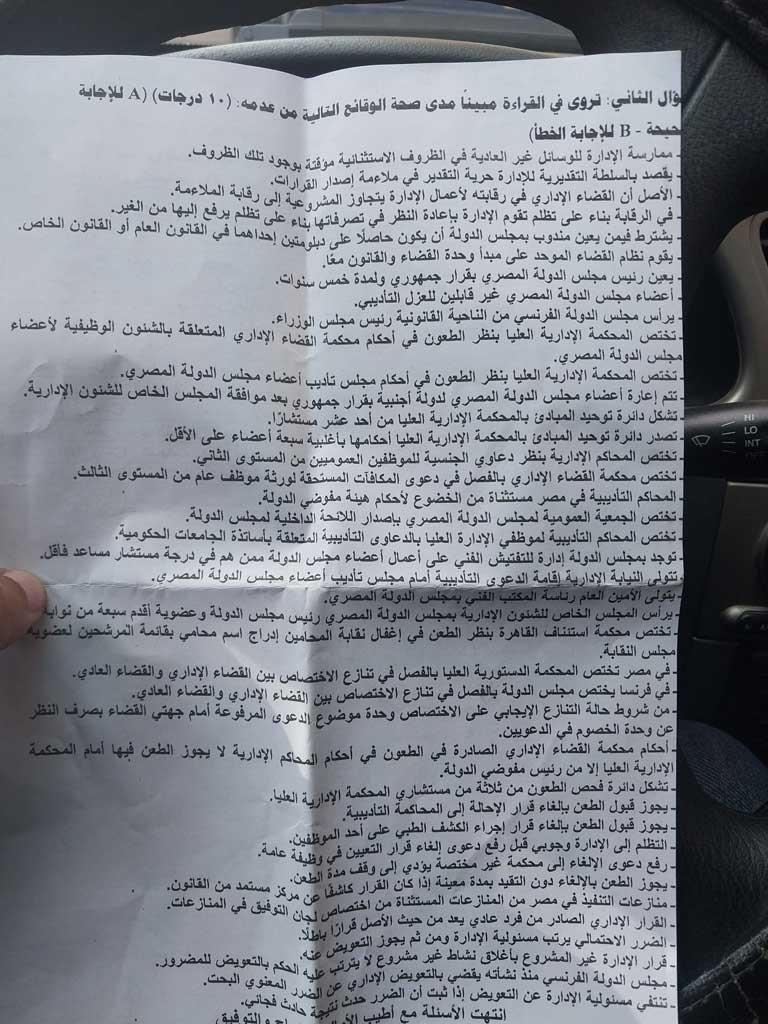 ؤال الثاني: تروى في القراءة مبيناً مدى صحة الوقائع التالية من عدمه: (١٠ درجات) (A للإجابة
حيحة - B للإجابة الخطأ)
- ممارسة الإدارة للوسائل غير العادية في الظروف الاستثنائية مؤقتة بوجود تلك الظروف.
- يقصد بالسلطة التقديرية للإدارة حرية التقدير في ملاءمة إصدار القرارات.
- الأصل أن القضاء الإداري في رقابته لأعمال الإدارة يتجاوز المشروعية إلى رقابة الملاءمة.
- في الرقابة بناء على تظلم تقوم الإدارة بإعادة النظر في تصرفاتها بناء على تظلم يرفع إليها من الغير.
- يشترط فيمن يعين مندوب بمجلس الدولة أن يكون حاصلًا على دبلومتين إحداهما في القانون العام أو القانون الخاص.
- يقوم نظام القضاء الموحد على مبدأ وحدة القضاء والقانون معًا.
- يعين رئيس مجلس الدولة المصري بقرار جمهوري ولمدة خمس سنوات.
- أعضاء مجلس الدولة المصري غير قابلين للعزل التأديبي.
- يرأس مجلس الدولة الفرنسي من الناحية القانونية رئيس مجلس الوزراء.
- تختص المحكمة الإدارية العليا بنظر الطعون في أحكام محكمة القضاء الإداري المتعلقة بالشئون الوظيفية لأعضاء
مجلس الدولة المصري.
- تختص المحكمة الإدارية العليا بنظر الطعون في أحكام مجلس تأديب أعضاء مجلس الدولة المصري.
- تتم إعارة أعضاء مجلس الدولة المصري لدولة أجنبية بقرار جمهوري بعد موافقة المجلس الخاص للشئون الإدارية.
- تشكل دائرة توحيد المبادئ بالمحكمة الإدارية العليا من أحد عشر مستشارًا.
- تصدر دائرة توحيد المبادئ بالمحكمة الإدارية العليا أحكامها بأغلبية سبعة أعضاء على الأقل.
- تختص المحاكم الإدارية بنظر دعاوي الجنسية للموظفين العموميين من المستوى الثاني.
- تختص محكمة القضاء الإداري بالفصل في دعوى المكافآت المستحقة لورثة موظف عام من المستوى الثالث.
- المحاكم التأديبية في مصر مستثناة من الخضوع لأحكام هيئة مفوضي الدولة.
- تختص الجمعية العمومية لمجلس الدولة المصري بإصدار اللائحة الداخلية لمجلس الدولة.
- تختص المحاكم التأديبية لموظفي الإدارة العليا بالدعاوى التأديبية المتعلقة بأساتذة الجامعات الحكومية.
- توجد بمجلس الدولة إدارة للتفتيش الفني على أعمال أعضاء مجلس الدولة ممن هم في درجة مستشار مساعد فأقل.
- تتولى النيابة الإدارية إقامة الدعوى التأديبية أمام مجلس تأديب أعضاء مجلس الدولة المصري.
- يتولى الأمين العام رئاسة المكتب الفني بمجلس الدولة المصري.
- يرأس المجلس الخاص للشئون الإدارية بمجلس الدولة المصري رئيس مجلس الدولة وعضوية أقدم سبعة من نوابه
- تختص محكمة استئناف القاهرة بنظر الطعن في إغفال نقابة المحامين إدراج اسم محامي بقائمة المرشحين لعضوية
مجلس النقابة.
- في مصر تختص المحكمة الدستورية العليا بالفصل في تنازع الاختصاص بين القضاء الإداري والقضاء العادي.
- في فرنسا يختص مجلس الدولة بالفصل في تنازع الاختصاص بين القضاء الإداري والقضاء العادي.
- من شروط حالة التنازع الإيجابي على الاختصاص وحدة موضوع الدعوى المرفوعة أمام جهتي القضاء بصرف النظر
عن وحدة الخصوم في الدعويين.
- أحكام محكمة القضاء الإداري الصادرة في الطعون في أحكام المحاكم الإدارية لا يجوز الطعن فيها أمام المحكمة
الإدارية العليا إلا من رئيس مفوضي الدولة.
- تشكل دائرة فحص الطعون من ثلاثة من مستشاري المحكمة الإدارية العليا.
- يجوز قبول الطعن بإلغاء قرار الإحالة إلى المحاكمة التأديبية.
- يجوز قبول الطعن بإلغاء قرار إجراء الكشف الطبي على أحد الموظفين.
- التظلم إلى الإدارة وجوبي قبل رفع دعوى إلغاء قرار التعيين في وظيفة عامة.
- رفع دعوى الإلغاء إلى محكمة غير مختصة يؤدي إلى وقف مدة الطعن.
- يجوز الطعن بالإلغاء دون التقيد بمدة معينة إذا كان القرار كاشفًا عن مركز مستمد من القانون.
- منازعات التنفيذ في مصر من المنازعات المستثناة من اختصاص لجان التوفيق في المنازعات.
- القرار الإداري الصادر من فرد عادي يعد من حيث الأصل قرارًا باطلًا.
- الضرر الاحتمالي يرتب مسئولية الإدارة ومن ثم يجوز التعويض عنه.
- قرار الإدارة غير المشروع بأغلاق نشاط غير مشروع لا يترتب عليه الحكم بالتعويض للمضرور.
- مجلس الدولة الفرنسي منذ نشأته يقضي بالتعويض الإداري عن الضرر المعنوي البحت.
- تنتفي مسئولية الإدارة عن التعويض إذا ثبت أن الضرر حدث نتيجة حادث فجائي.
انتهت الأسئلة مع أطيب والتوفيق
HI
LO
INT
OFF